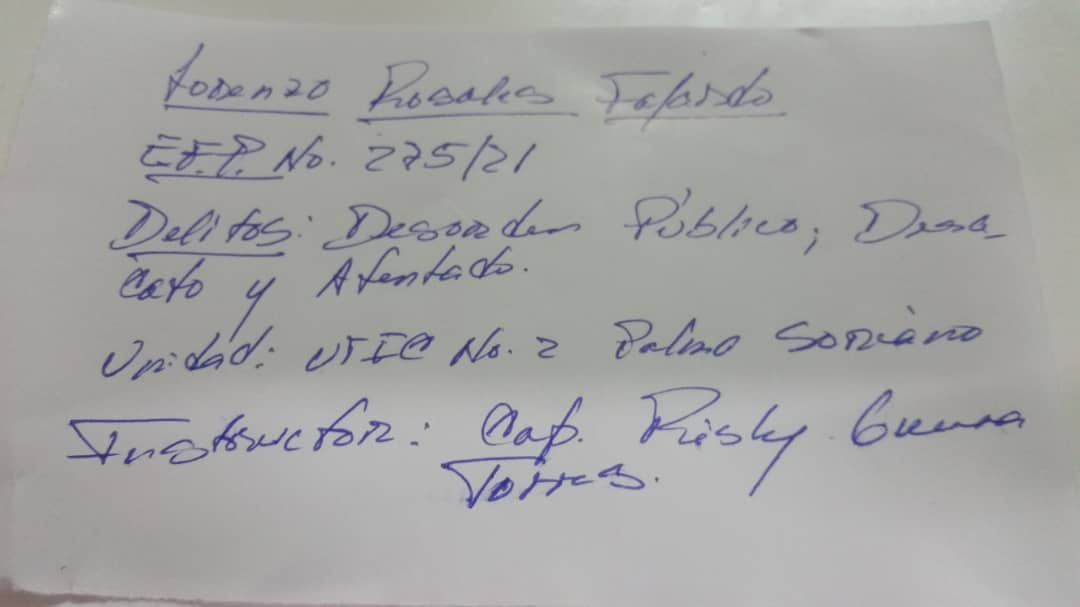 Lorenzo Rosales Fajardo
E.F.P. No. 275/21
Delitos: Desorden Público; Desa-
cato y Atentado.
Unidad: UTIC No. 2 Palma Soriano
Instructor: Cap. Risky Guerra
Torres.